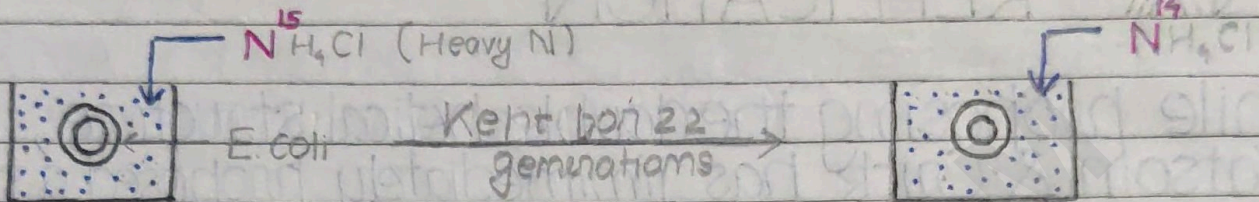 ¹⁵NH₄Cl (Heavy N)
¹⁴NH₄Cl
E. coli
Kept for 22
generations